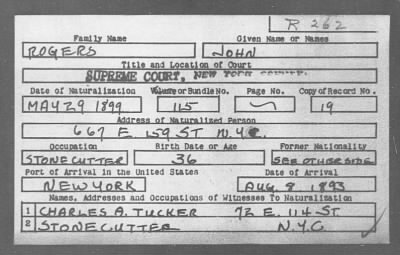 R 262
Family Name Given Name or Names
ROGERS JOHN
Title and Location of Court
SUPREME COURT, NEW YORK COUNTY.
Date of Naturalization Volume or Bundle No. Page No. Copy of Record No.
MAY 29 1899 115 19
Address of Naturalized Person
667 E 159 ST N.Y.C.
Occupation Birth Date or Age Former Nationality
STONECUTTER 36 SEE OTHERSIDE
Port of Arrival in the United States Date of Arrival
NEW YORK AUG. 8, 1893
Names, Addresses and Occupations of Witnesses To Naturalization
1 CHARLES A. TUCKER 72 E. 114 ST
2 STONECUTTER N.Y.C